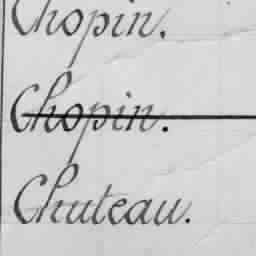 Chopin.
Chopin.
Chuteau.